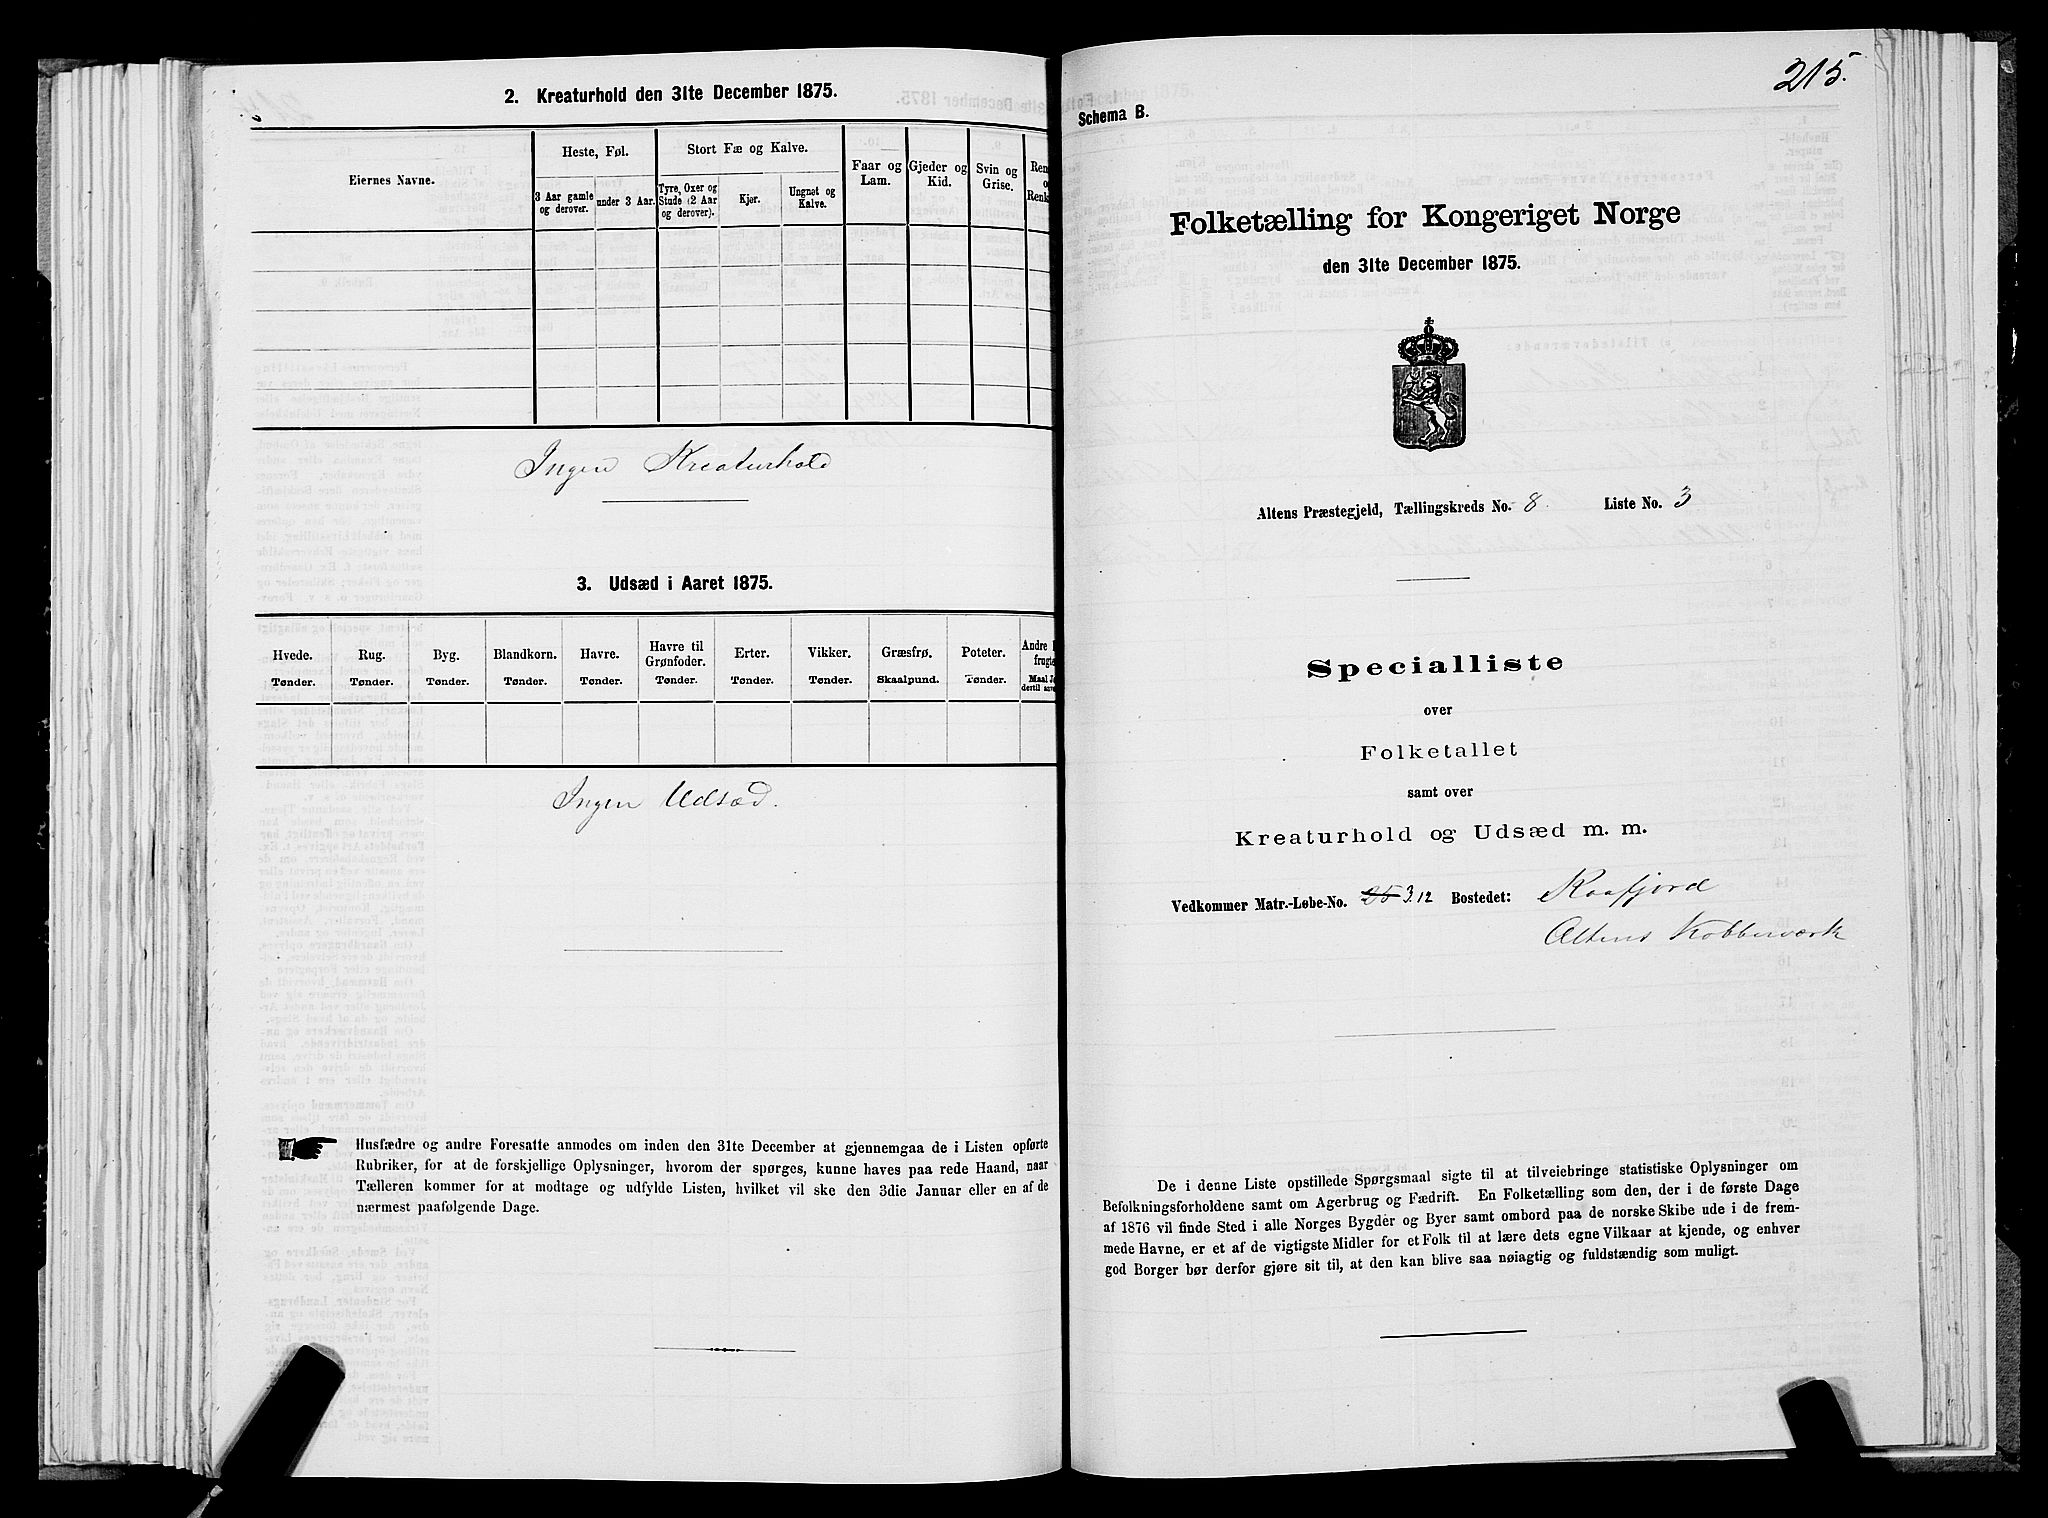 2. Kreaturhold den 31te December 1875.
Eiernes Navne.
Heste, Føl.
Stort Fæ og Kalve.
Faar og Lam.
Gjeder og Kid.
Svin og Grise.
3 Aar gamle og derover.
under 3 Aar.
Tyre, Oxer og Stude (2 Aar og derover).
Kjør.
Ungnøt og Kalve.
Ingen Kreaturhold
3. Udsæd i Aaret 1875.
Hvede. Rug. Byg. Blandkorn. Havre. Havre til Grønfoder. Erter. Vikker. Græsfrø. Poteter. Andre
Tønder. Tønder. Tønder. Tønder. Tønder. Tønder. Tønder. Tønder. Skaalpund. Tønder.
Ingen Udsæd.
Husfædre og andre Foresatte anmodes om inden den 31te December at gjennemgaa de i Listen opførte
Rubriker, for at de forskjellige Oplysninger, hvorom der spørges, kunne haves paa rede Haand, naar
Tælleren kommer for at modtage og udfylde Listen, hvilket vil ske den 3die Januar eller en af de
nærmest paafølgende Dage.
215.
Schema B.
Folketælling for Kongeriget Norge
den 31te December 1875.
Altens Præstegjeld, Tællingskreds No. 8. Liste No. 3
Specialliste
over
Folketallet
samt over
Kreaturhold og Udsæd m. m.
Vedkommer Matr.-Løbe-No. 25 3.12 Bostedet: Kaafjord
Altens Kobberværk
De i denne Liste opstillede Spørgsmaal sigte til at tilveiebringe statistiske Oplysninger om
Befolkningsforholdene samt om Agerbrug og Fædrift. En Folketælling som den, der i de første Dage
af 1876 vil finde Sted i alle Norges Bygder og Byer samt ombord paa de norske Skibe ude i de frem-
mede Havne, er et af de vigtigste Midler for et Folk til at lære dets egne Vilkaar at kjende, og enhver
god Borger bør derfor gjøre sit til, at den kan blive saa nøiagtig og fuldstændig som muligt.